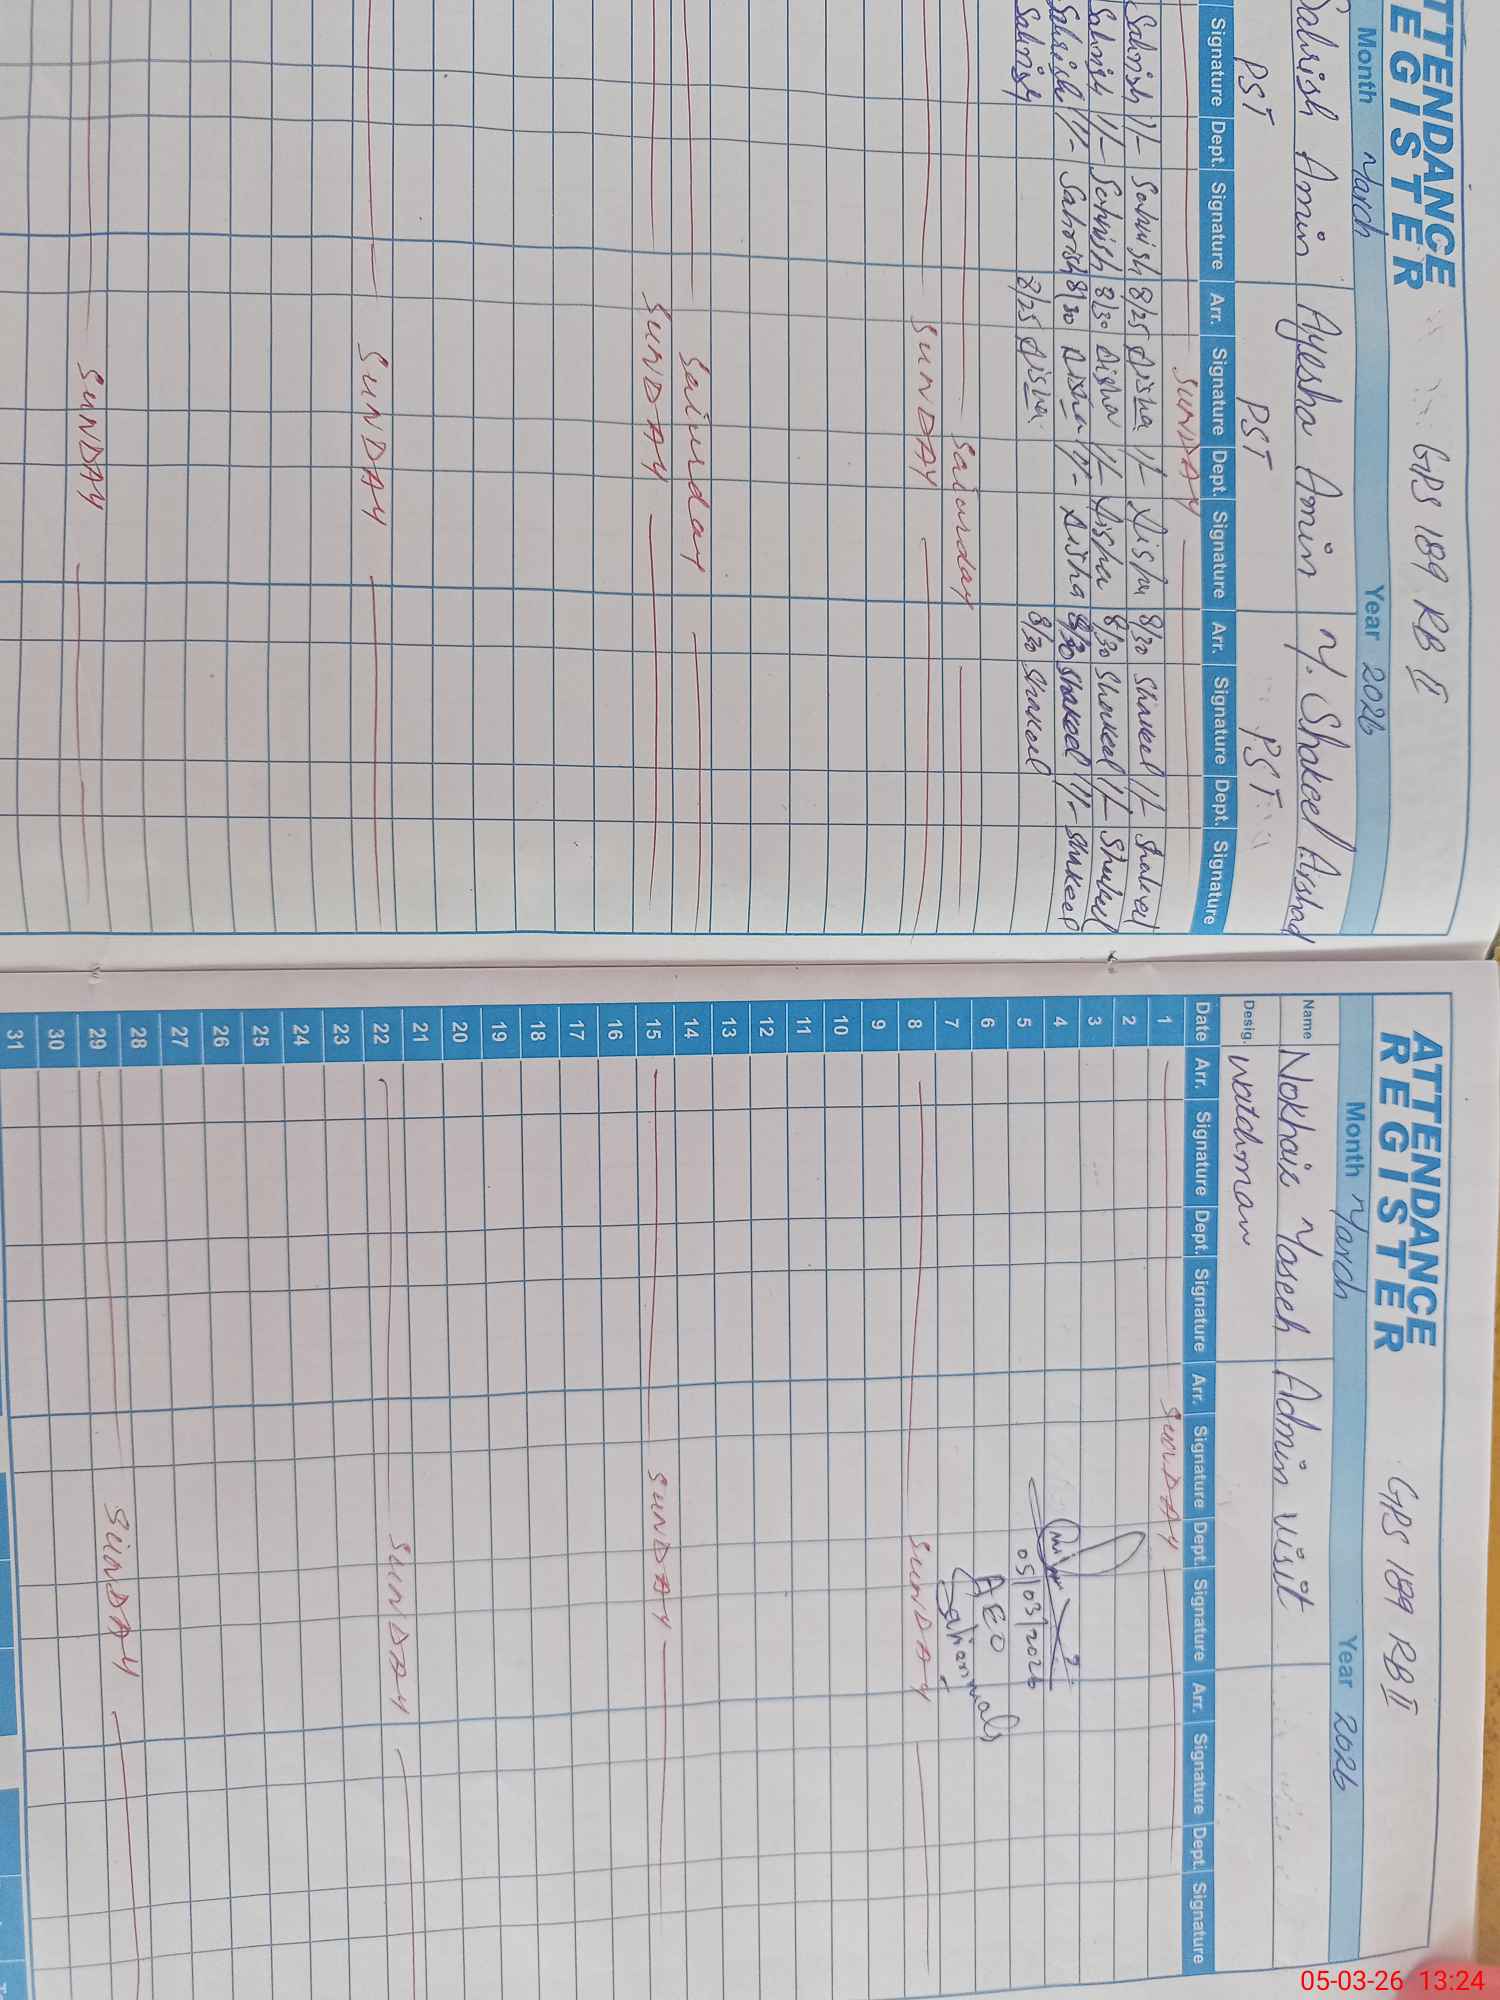 ATTENDANCE
REGISTER
GPS 189 RB II
Month March Year 2026
Sahrish Amin Ayesha Amin M. Shakeel Arshad
PST PST PST
Signature Dept. Signature Arr. Signature Dept. Signature Arr. Signature Dept. Signature
SUNDAY
Sahrish 1/- Sahrish 8/25 Aisha 1/- Aisha 8/30 Shakeel 1/- Shakeel
Sahrish 1/- Sahrish 8/30 Aisha 1/- Aisha 8/30 Shakeel 1/- Shakeel
Sahrish 1/- Sahrish 8/30 Aisha 1/- Aisha 8/30 Shakeel 1/- Shakeel
Sahrish 8/25 Aisha 8/30 Shakeel
Saturday
SUNDAY
Saturday
SUNDAY
SUNDAY
SUNDAY
ATTENDANCE
REGISTER
GPS 189 RB II
Month March Year 2026
Name Nokhaiz Maseeh Admin visit
Desig. Watchman
Date Arr. Signature Dept. Signature Arr. Signature Dept. Signature Arr. Signature Dept. Signature
1 SUNDAY
2
3
4
5 05/03/2026
6 AEO
7
8 SUNDAY
9
10
11
12
13
14
15 SUNDAY
16
17
18
19
20
21
22 SUNDAY
23
24
25
26
27
28
29 SUNDAY
30
31
05-03-26 13:24